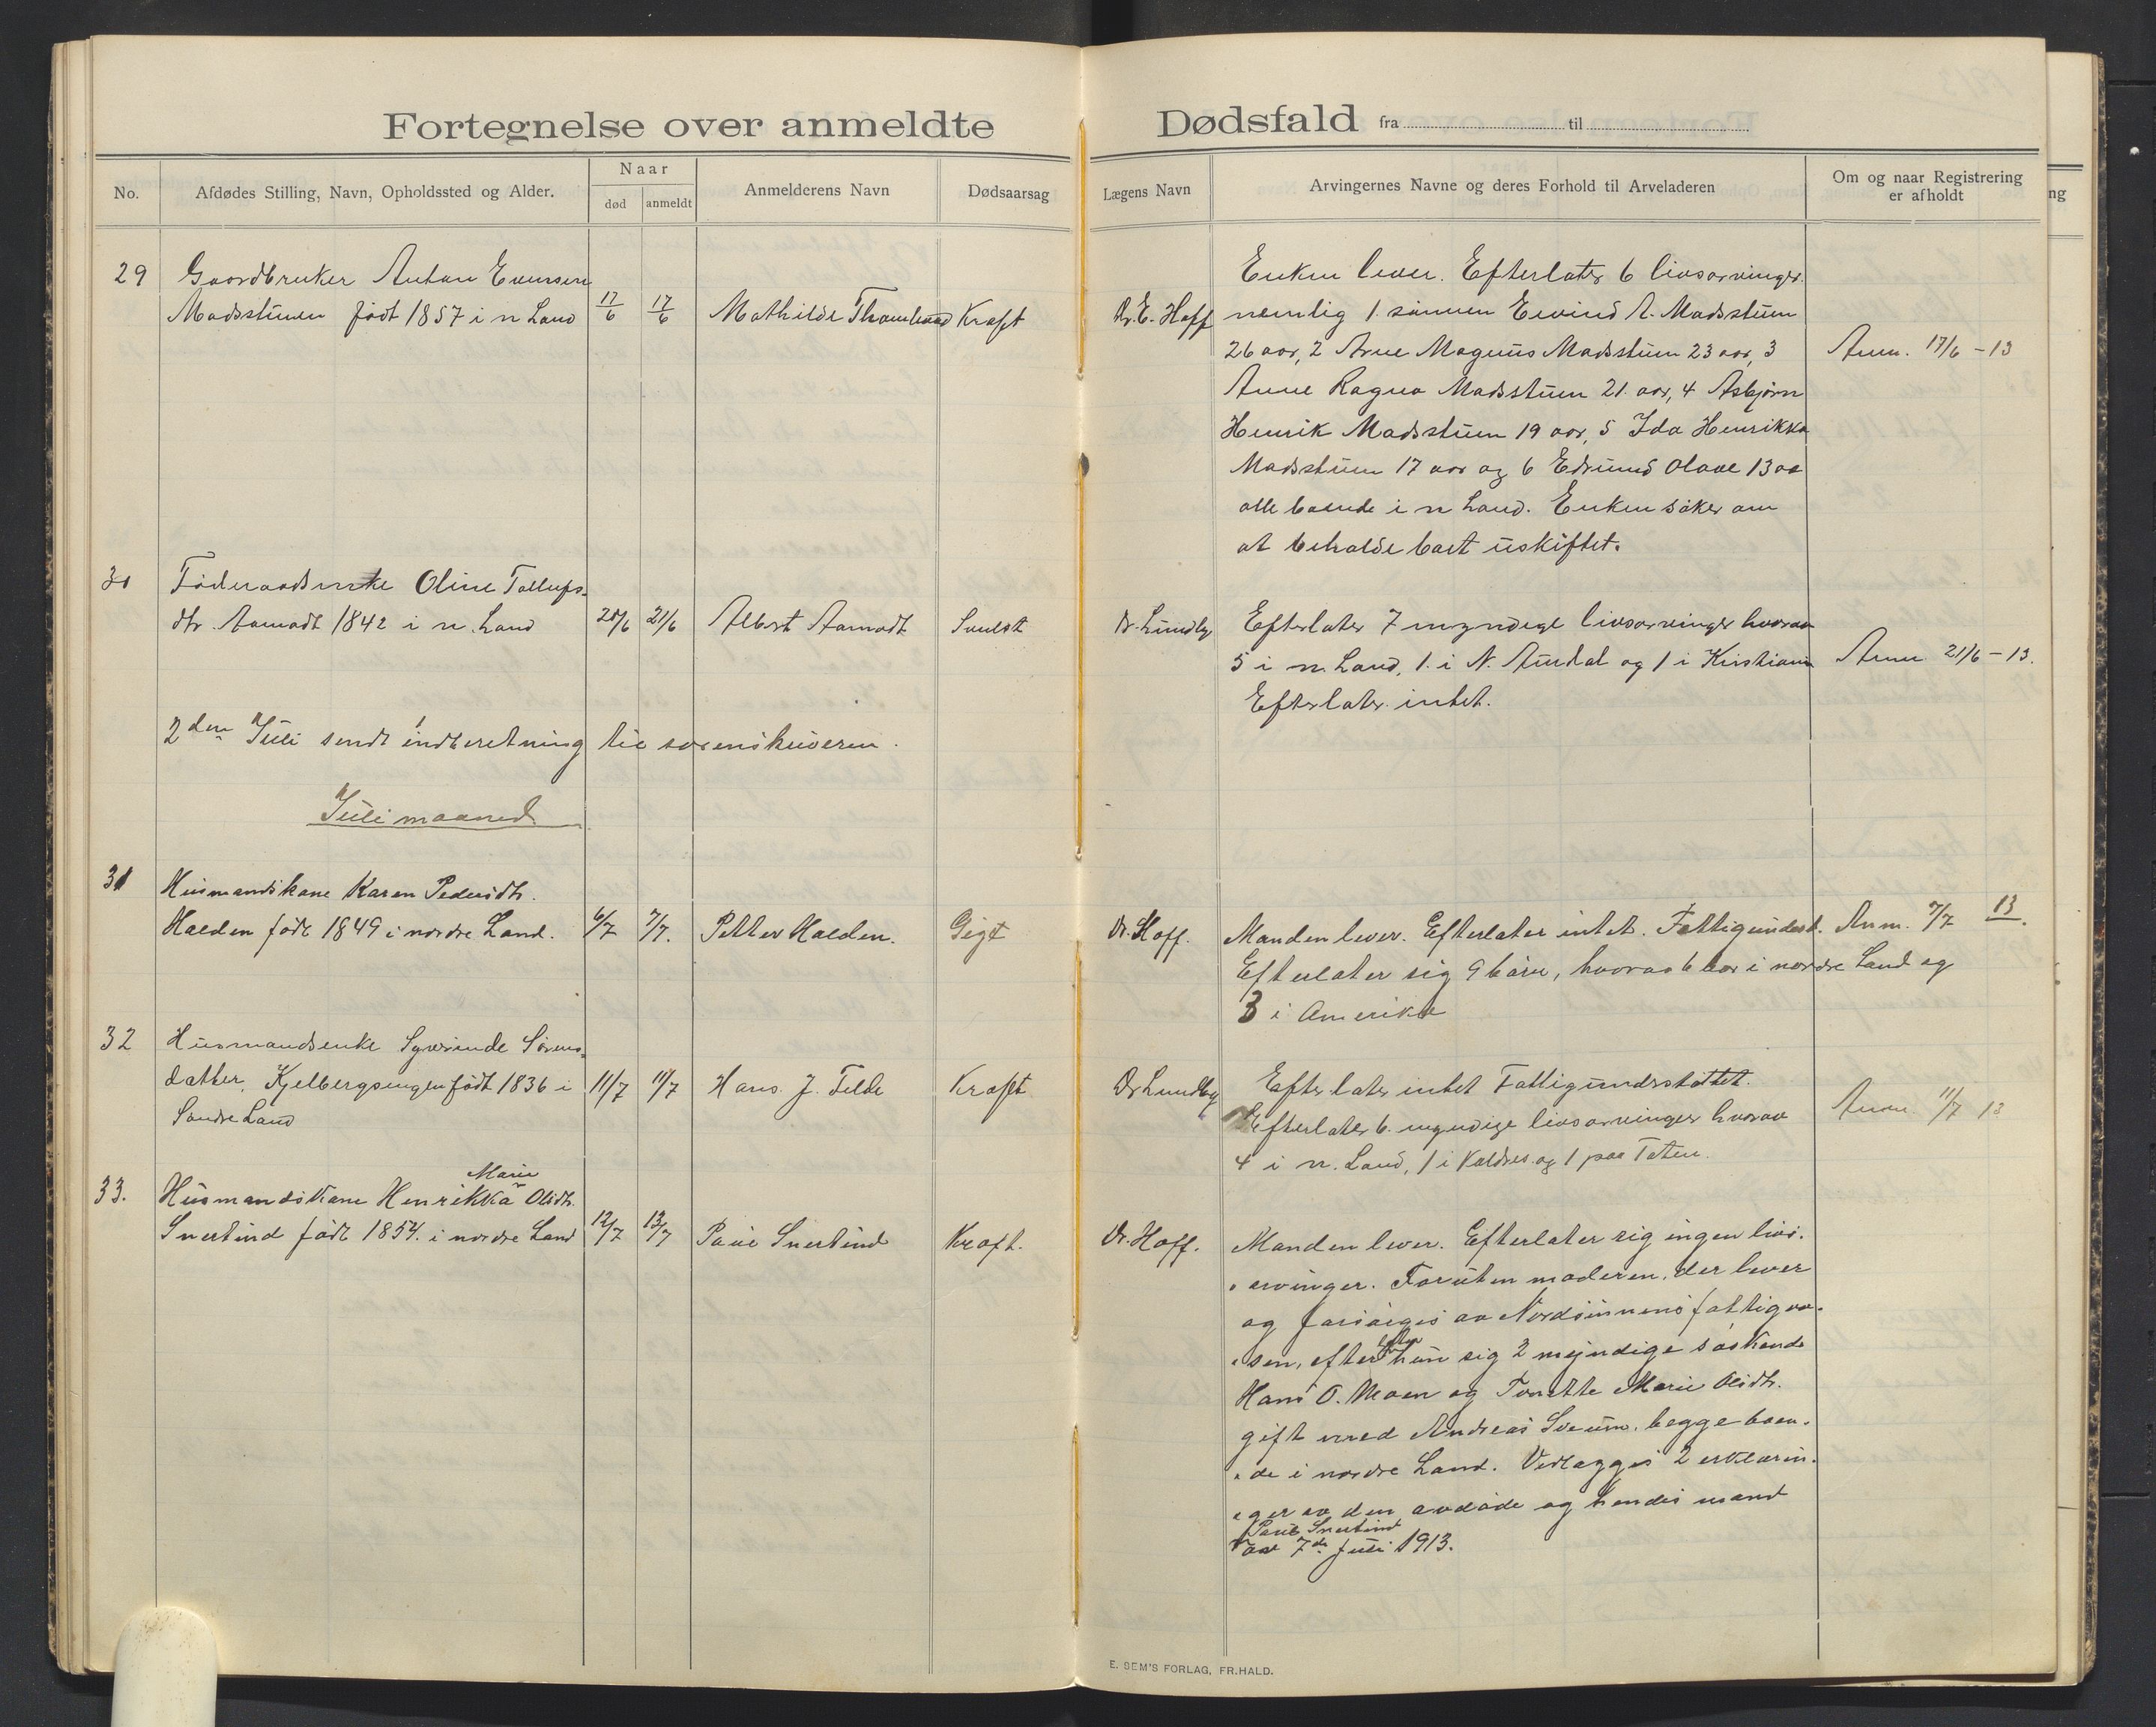 Fortegnelse over anmeldte Dødsfald fra til
No.
Afdødes Stilling, Navn, Opholdssted og Alder.
Naar
død
anmeldt
Anmelderens Navn
Dødsaarsag
Lægens Navn
Arvingernes Navne og deres Forhold til Arveladeren
Om og naar Registrering
er afholdt
ng
29 Gaardbruker Anton Evensen
Madsstuen født 1857 i n Land
17/6 17/6 Mathilde Kræft
Dr. E. Hoff
Enken lever. Efterlater 6 livsarvinger
nemlig 1 sønnen Eivind A. Madsstuen
26 aar, 2 Arne Magnus Madsstuen 23 aar, 3
Anne Ragna Madsstuen 21. aar, 4 Asbjørn
Henrik Madsstuen 19 aar, 5 Ida Henrikka
Madsstuen 17 aar og 6 Edmund Olave 13 aa
alle boende i n Land. Enken søker om
at beholde boet uskiftet.
Anm. 17/6 - 13
30 Føderaadsenke Oline Tollefs-
dtr. Aamodt 1842 i n. Land
20/6 21/6 Albert Aamodt
Dr. Lundby
Efterlater 7 myndige livsarvinger hvorav
5 i n. Land, 1. i N. Aurdal og 1 i Kristiania
Efterlater intet.
Anm 21/6 - 13.
2den Juli sendt indberetning til sorenskriveren.
Juli maaned
31 Husmandskone Karen Pedersdtr.
Halden født 1849 i nordre Land.
6/7 7/7. Petter Halden. Gigt
Dr. Hoff.
Manden lever. Efterlater intet. Fattigunderst.
Efterlater sig 9 børn, hvorav 6 bor i nordre Land og
3 i Amerika
Anm. 7/7 13.
32 Husmandsenke Syverinde Sørens-
datter, Kjelbergsengen født 1836 i
Søndre Land
11/7 11/7 Hans. J. Felde Kræft
Dr Lundby
Efterlater intet Fattigunderstøttet.
Efterlater 6. myndige livsarvinger hvorav
4 i n. Land, 1 i Valdres og 1 paa Toten.
Anm 11/7 13
33. Husmandskone Henrikka Marie Olsdtr.
Snertind født 1854. i nordre Land
12/7 13/7 Paul Snertind Kræft.
Dr. Hoff.
Manden lever. Efterlater sig ingen livs-
arvinger. Foruten moderen, der lever
og forsørges av Nordsinnens fattigvæ-
sen, efterlater hun sig 2 myndige søskende
Hans O. Moen og Tonette Marie Olsdtr.
gift med Andreas Sveum, begge boen-
de i nordre Land. Vedlægges 2 erklærin-
ger av den avdøde og hendes mand
Paul Snertind
av 7de Juli 1913.
E. SEM'S FORLAG, FR.HALD.